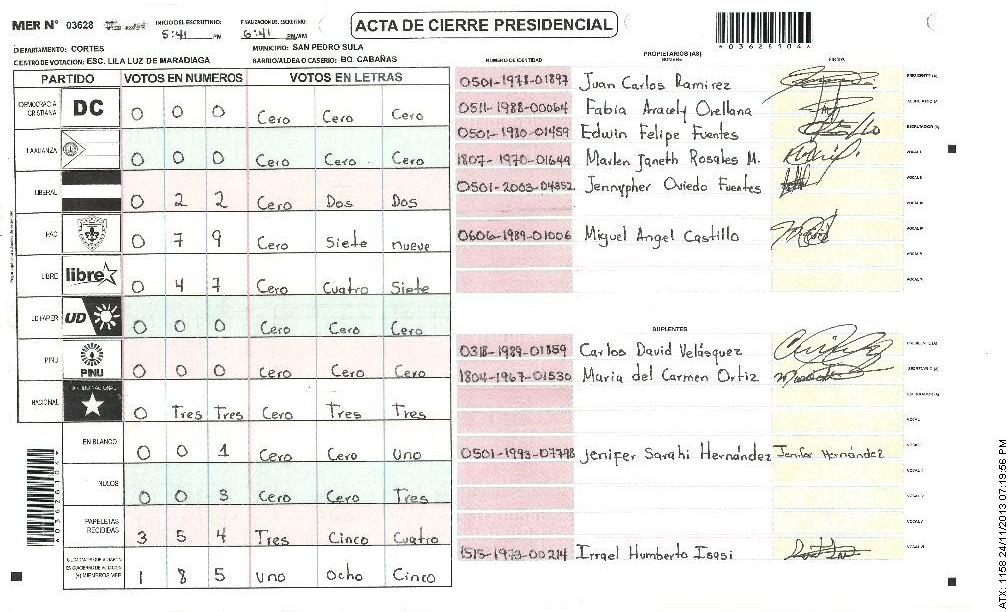 MER N° 03628 INICIO DEL ESCRUTINIO: 5:41 PM FINALIZACION DEL ESCRUTINIO: 6:41 PM/AM
ACTA DE CIERRE PRESIDENCIAL
*03628104*
DEPARTAMENTO: CORTES MUNICIPIO: SAN PEDRO SULA
CENTRO DE VOTACION: ESC. LILA LUZ DE MARADIAGA BARRIO/ALDEA O CASERIO: BO. CABAÑAS
PARTIDO VOTOS EN NUMEROS VOTOS EN LETRAS
DEMOCRACIA CRISTIANA DC 0 0 0 Cero Cero Cero
LA ALIANZA 0 0 0 Cero Cero Cero
LIBERAL 0 2 2 Cero Dos Dos
PAC 0 7 9 Cero Siete nueve
LIBRE libre 0 4 7 Cero Cuatro Siete
UD FAPER UD 0 0 0 Cero Cero Cero
PINU PINU 0 0 0 Cero Cero Cero
NACIONAL 0 Tres Tres Cero Tres Tres
EN BLANCO 0 0 1 Cero Cero Uno
NULOS 0 0 3 Cero Cero Tres
PAPELETAS RECIBIDAS 3 5 4 Tres Cinco Cuatro
1 8 5 uno ocho Cinco
NUMERO DE IDENTIDAD PROPIETARIOS (AS) NOMBRE FIRMA
0501-1978-01897 Juan Carlos Ramirez PRESIDENTE (A)
0511-1988-00064 Fabia Aracely Orellana SECRETARIO (A)
0501-1980-01459 Edwin Felipe Fuentes ESCRUTADOR (A)
1807-1970-01649 Marlen Janeth Rosales M. VOCAL I
0501-2003-04352 Jennypher Oviedo Fuentes VOCAL II
VOCAL III
0606-1989-01006 Miguel Angel Castillo VOCAL IV
VOCAL V
SUPLENTES
0318-1989-01359 Carlos David Velásquez PRESIDENTE (A)
1804-1967-01530 Maria del Carmen Ortiz SECRETARIO (A)
ESCRUTADOR (A)
VOCAL I
0501-1993-07798 Jenifer Sarahi Hernández Jenifer Hernández
1515-1973-00214 Isasi Humberto
*03628104*
ATX: 1158 24/11/2013 07:19:56 PM